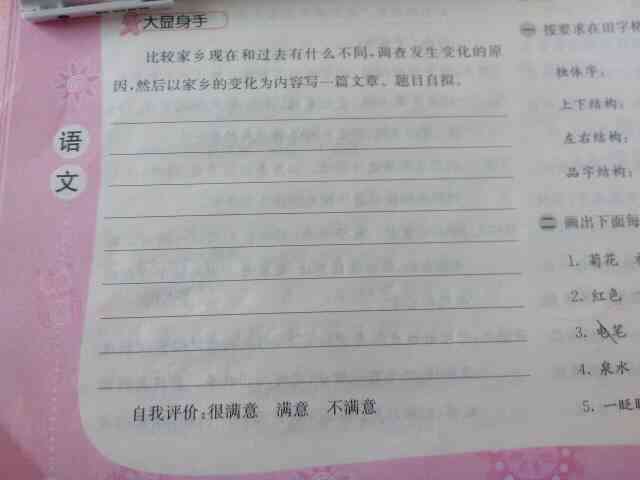 大显身手
比较家乡现在和过去有什么不同,调查发生变化的原
因,然后以家乡的变化为内容写一篇文章。题目自拟。
自我评价:很满意 满意 不满意
语
文
一 按要求在田字格
独体字:
上下结构:
左右结构:
品字结构:
二 画出下面每
1. 菊花
2. 红色
3. 电笔
4. 泉水
5. 一眨眼